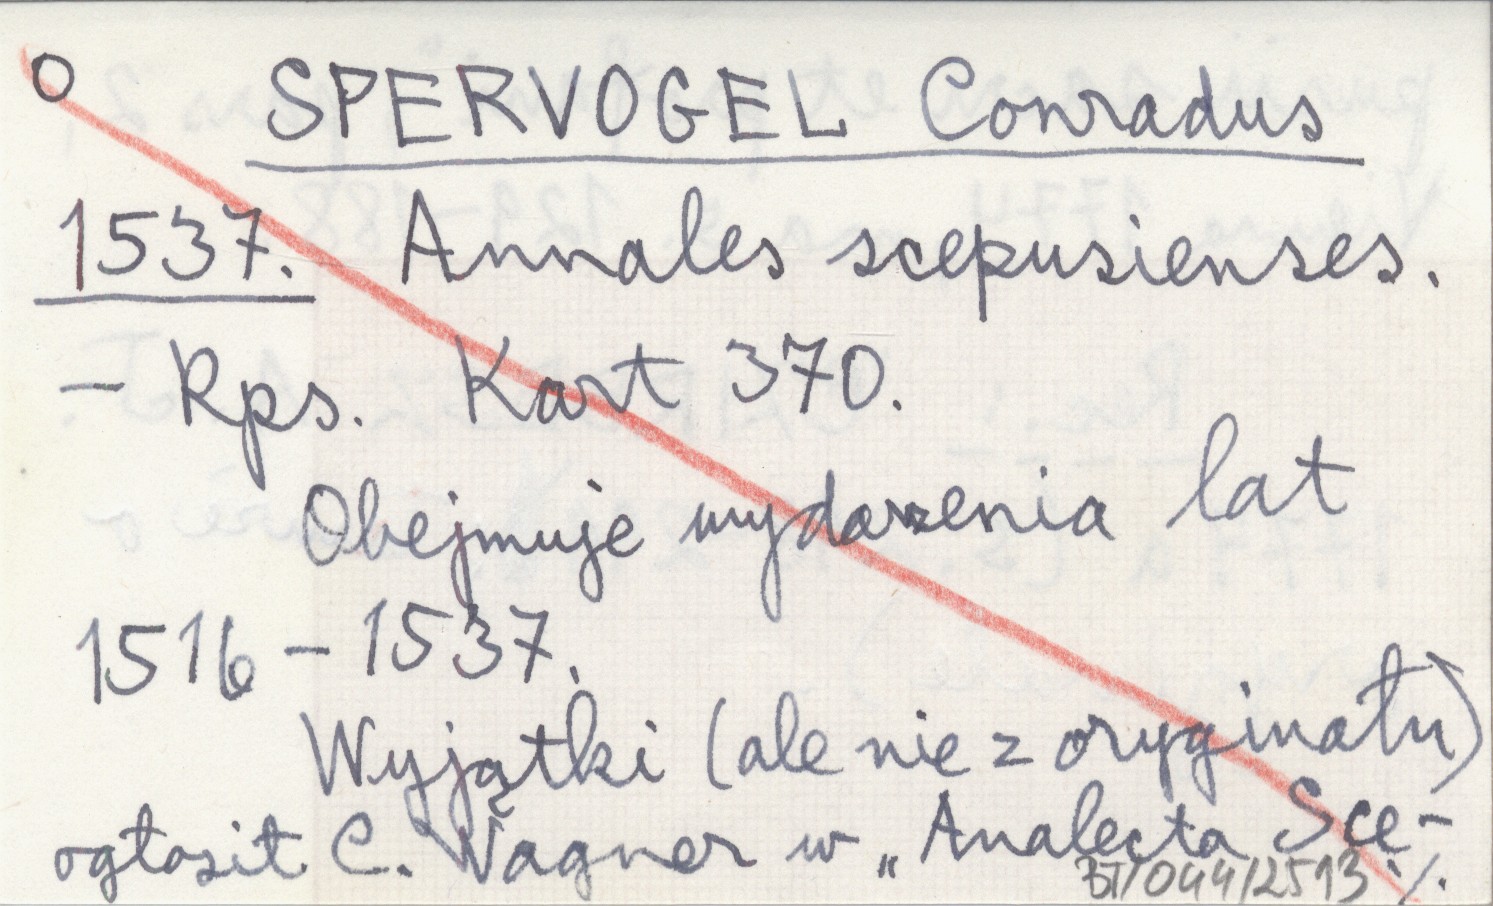 O SPERVOGEL Conradus
1537. Annales scepusienses.
– Rps. Kart 370.
Obejmuje wydarzenia lat
1516 – 1537.
Wyjątki (ale nie z oryginału)
ogłosił C. Wagner w „Analecta Sce-
BT/044/2513 ./.